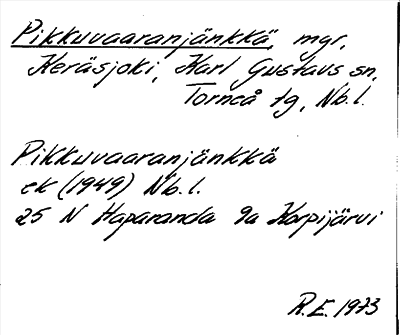 Pikkuvaaranjänkkä, mgr,
Keräsjoki, Karl Gustavs sn,
Torneå tg, Nb.l.
Pikkuvaaranjänkkä
ek (1949) Nb.l.
25 N Haparanda 9a Korpijärvi
R.E. 1973